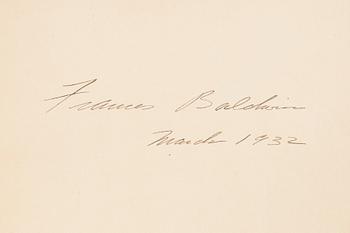 Frances Baldwin
March 1932